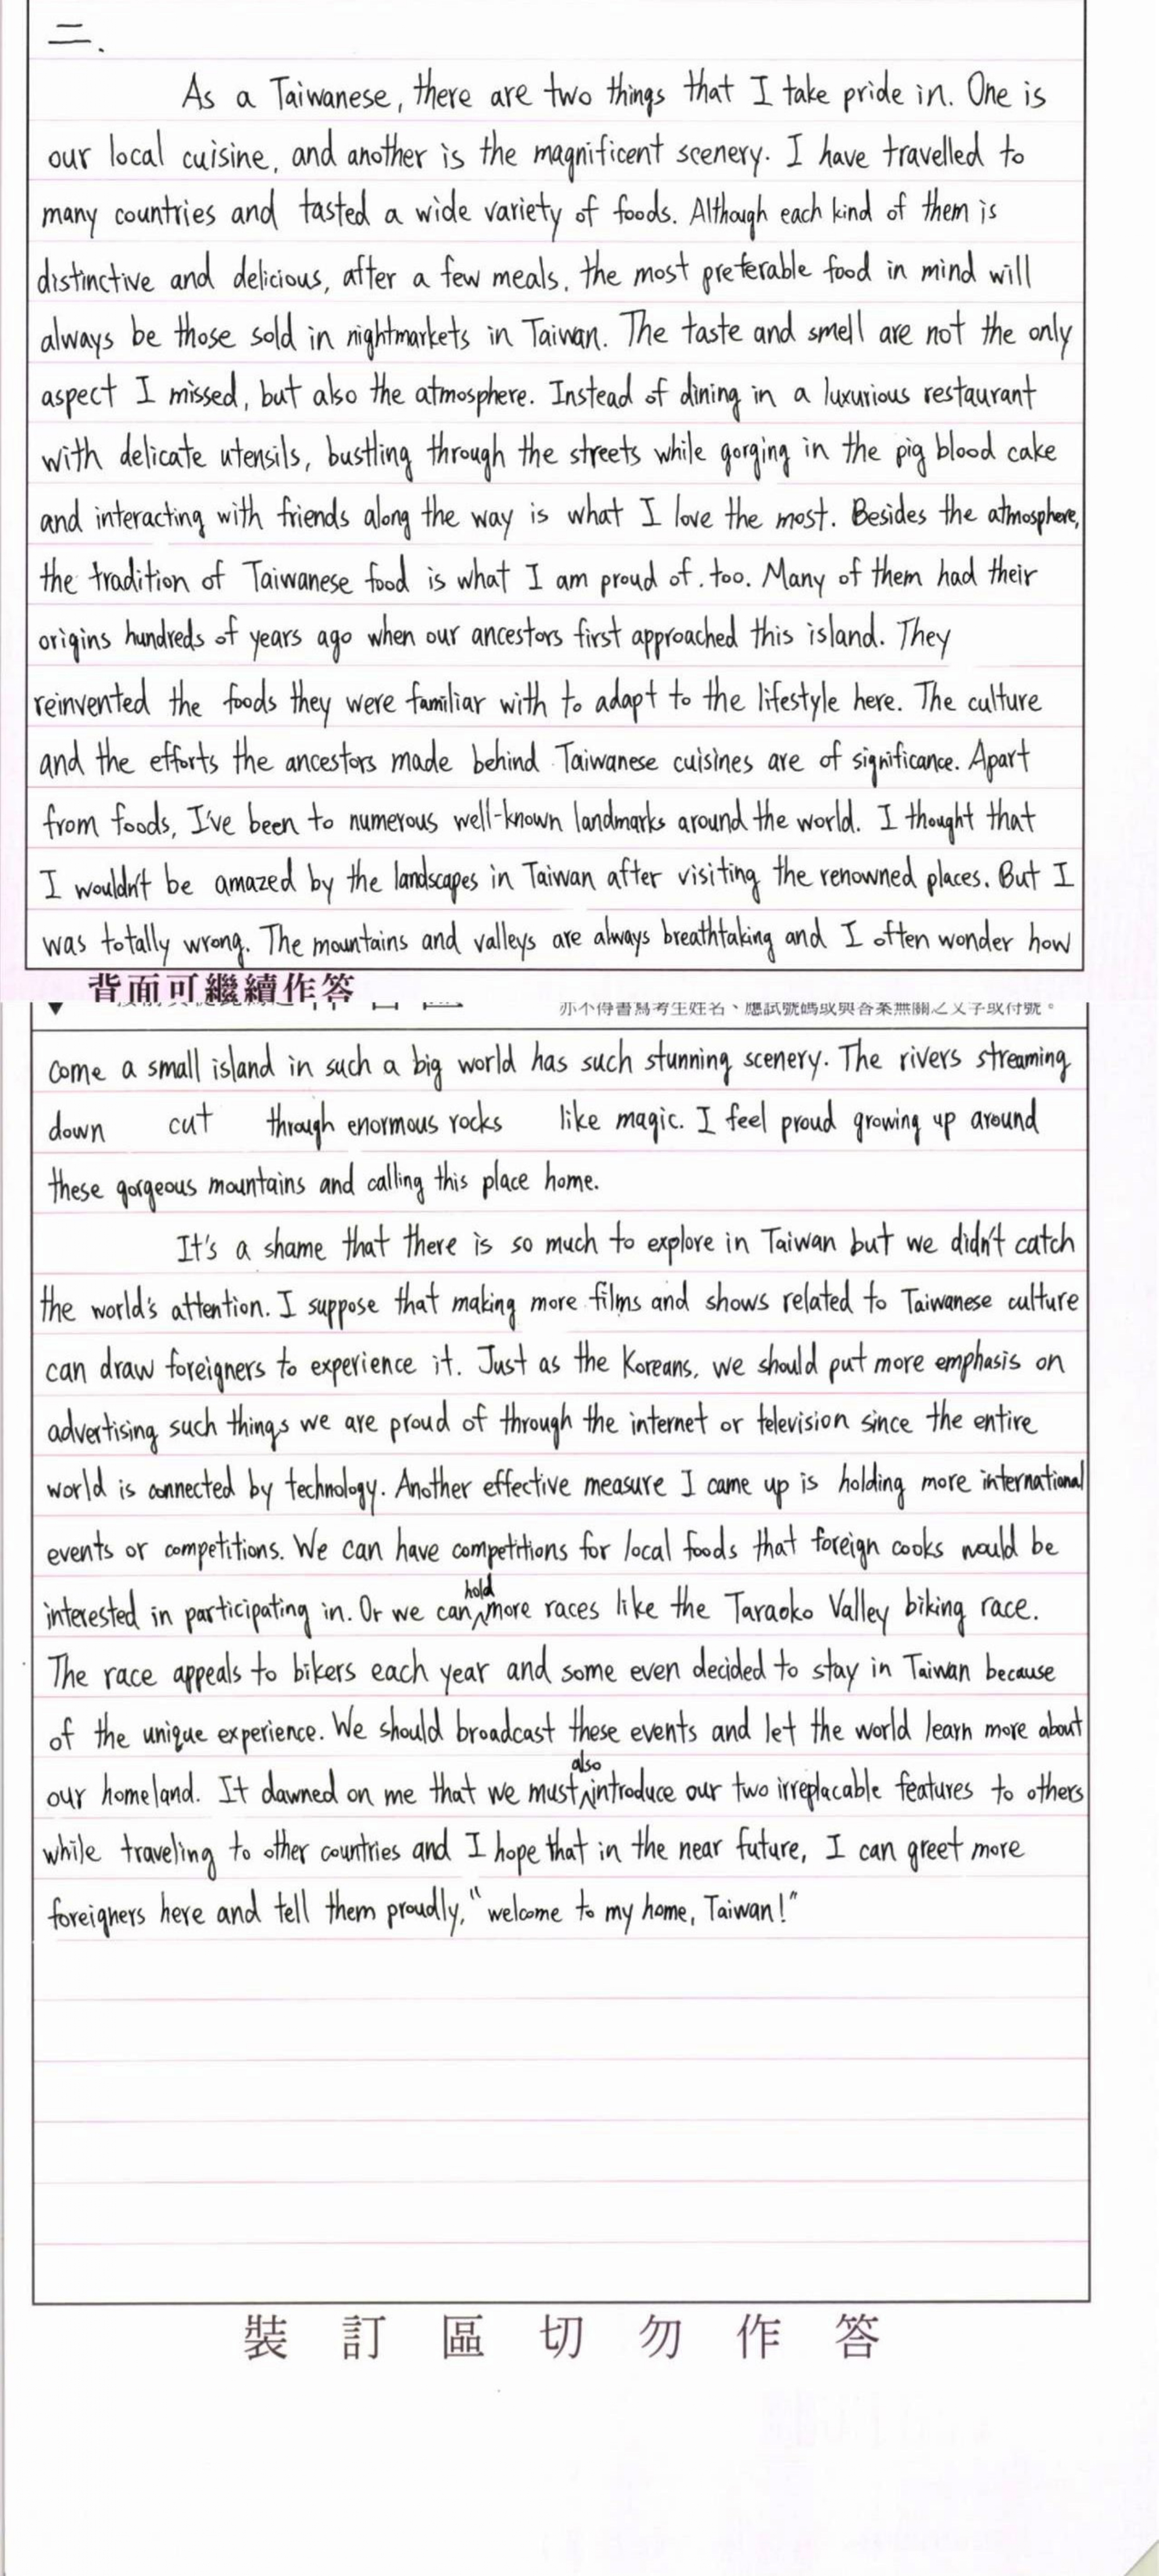 二.
As a Taiwanese, there are two things that I take pride in. One is
our local cuisine, and another is the magnificent scenery. I have travelled to
many countries and tasted a wide variety of foods. Although each kind of them is
distinctive and delicious, after a few meals, the most preferable food in mind will
always be those sold in nightmarkets in Taiwan. The taste and smell are not the only
aspect I missed, but also the atmosphere. Instead of dining in a luxurious restaurant
with delicate utensils, bustling through the streets while gorging in the pig blood cake
and interacting with friends along the way is what I love the most. Besides the atmosphere,
the tradition of Taiwanese food is what I am proud of, too. Many of them had their
origins hundreds of years ago when our ancestors first approached this island. They
reinvented the foods they were familiar with to adapt to the lifestyle here. The culture
and the efforts the ancestors made behind Taiwanese cuisines are of significance. Apart
from foods, I've been to numerous well-known landmarks around the world. I thought that
I wouldn't be amazed by the landscapes in Taiwan after visiting the renowned places. But I
was totally wrong. The mountains and valleys are always breathtaking and I often wonder how
背面可繼續作答
亦不得書寫考生姓名、應試號碼或與答案無關之文字或符號。
come a small island in such a big world has such stunning scenery. The rivers streaming
down cut through enormous rocks like magic. I feel proud growing up around
these gorgeous mountains and calling this place home.
It's a shame that there is so much to explore in Taiwan but we didn't catch
the world's attention. I suppose that making more films and shows related to Taiwanese culture
can draw foreigners to experience it. Just as the Koreans, we should put more emphasis on
advertising such things we are proud of through the internet or television since the entire
world is connected by technology. Another effective measure I came up is holding more international
events or competitions. We can have competitions for local foods that foreign cooks would be
interested in participating in. Or we can hold more races like the Taraoko Valley biking race.
The race appeals to bikers each year and some even decided to stay in Taiwan because
of the unique experience. We should broadcast these events and let the world learn more about
our homeland. It dawned on me that we must also introduce our two irreplacable features to others
while traveling to other countries and I hope that in the near future, I can greet more
foreigners here and tell them proudly, "welcome to my home, Taiwan!"
裝訂區切勿作答